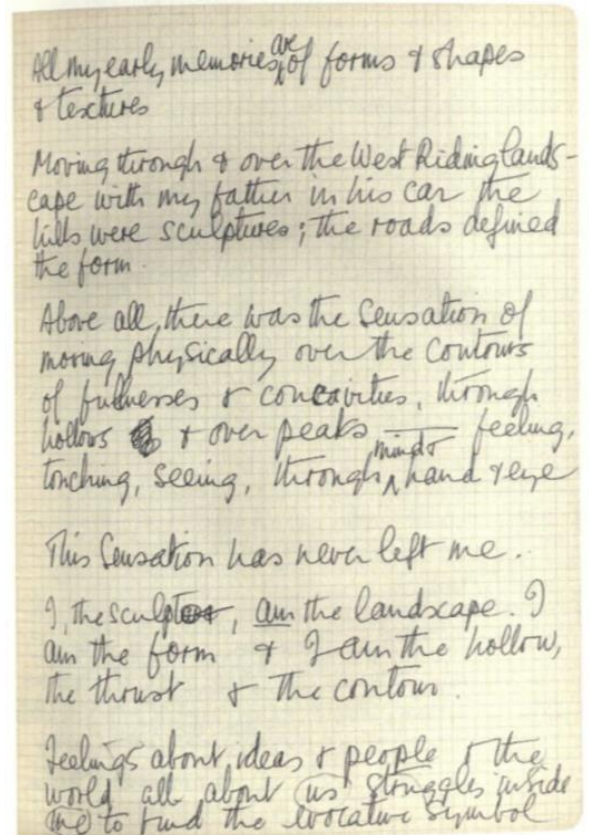 All my early memories are of forms & shapes
& textures
Moving through & over the West Riding lands-
cape with my father in his car the
hills were sculptures; the roads defined
the form.
Above all, there was the Sensation of
moving physically over the contours
of fullnesses & concavities, through
hollows & over peaks — feeling,
touching, seeing, through mind & hand & eye
This Sensation has never left me.
I, the sculptor, am the landscape. I
am the form & I am the hollow,
the thrust & the contour.
Feelings about ideas & people & the
world all about us struggles inside
me to find the evocative symbol